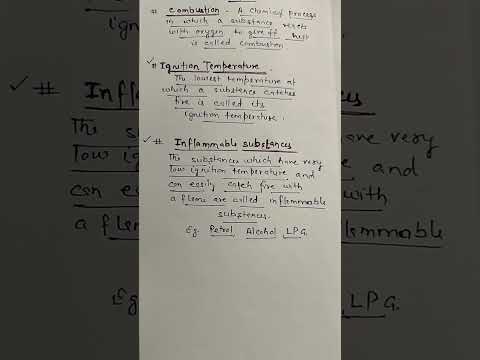 # Combustion - A Chemical process
in which a substance reacts
with oxygen to give off heat
is called combustion
# Ignition Temperature.
The lowest temperature at
which a substance catches
fire is called its
ignition temperature.
# Inflammable substances
The substances which have very
low ignition temperature and
can easily catch fire with
a flame are called inflammable
substances.
Eg. Petrol Alcohol LPG.